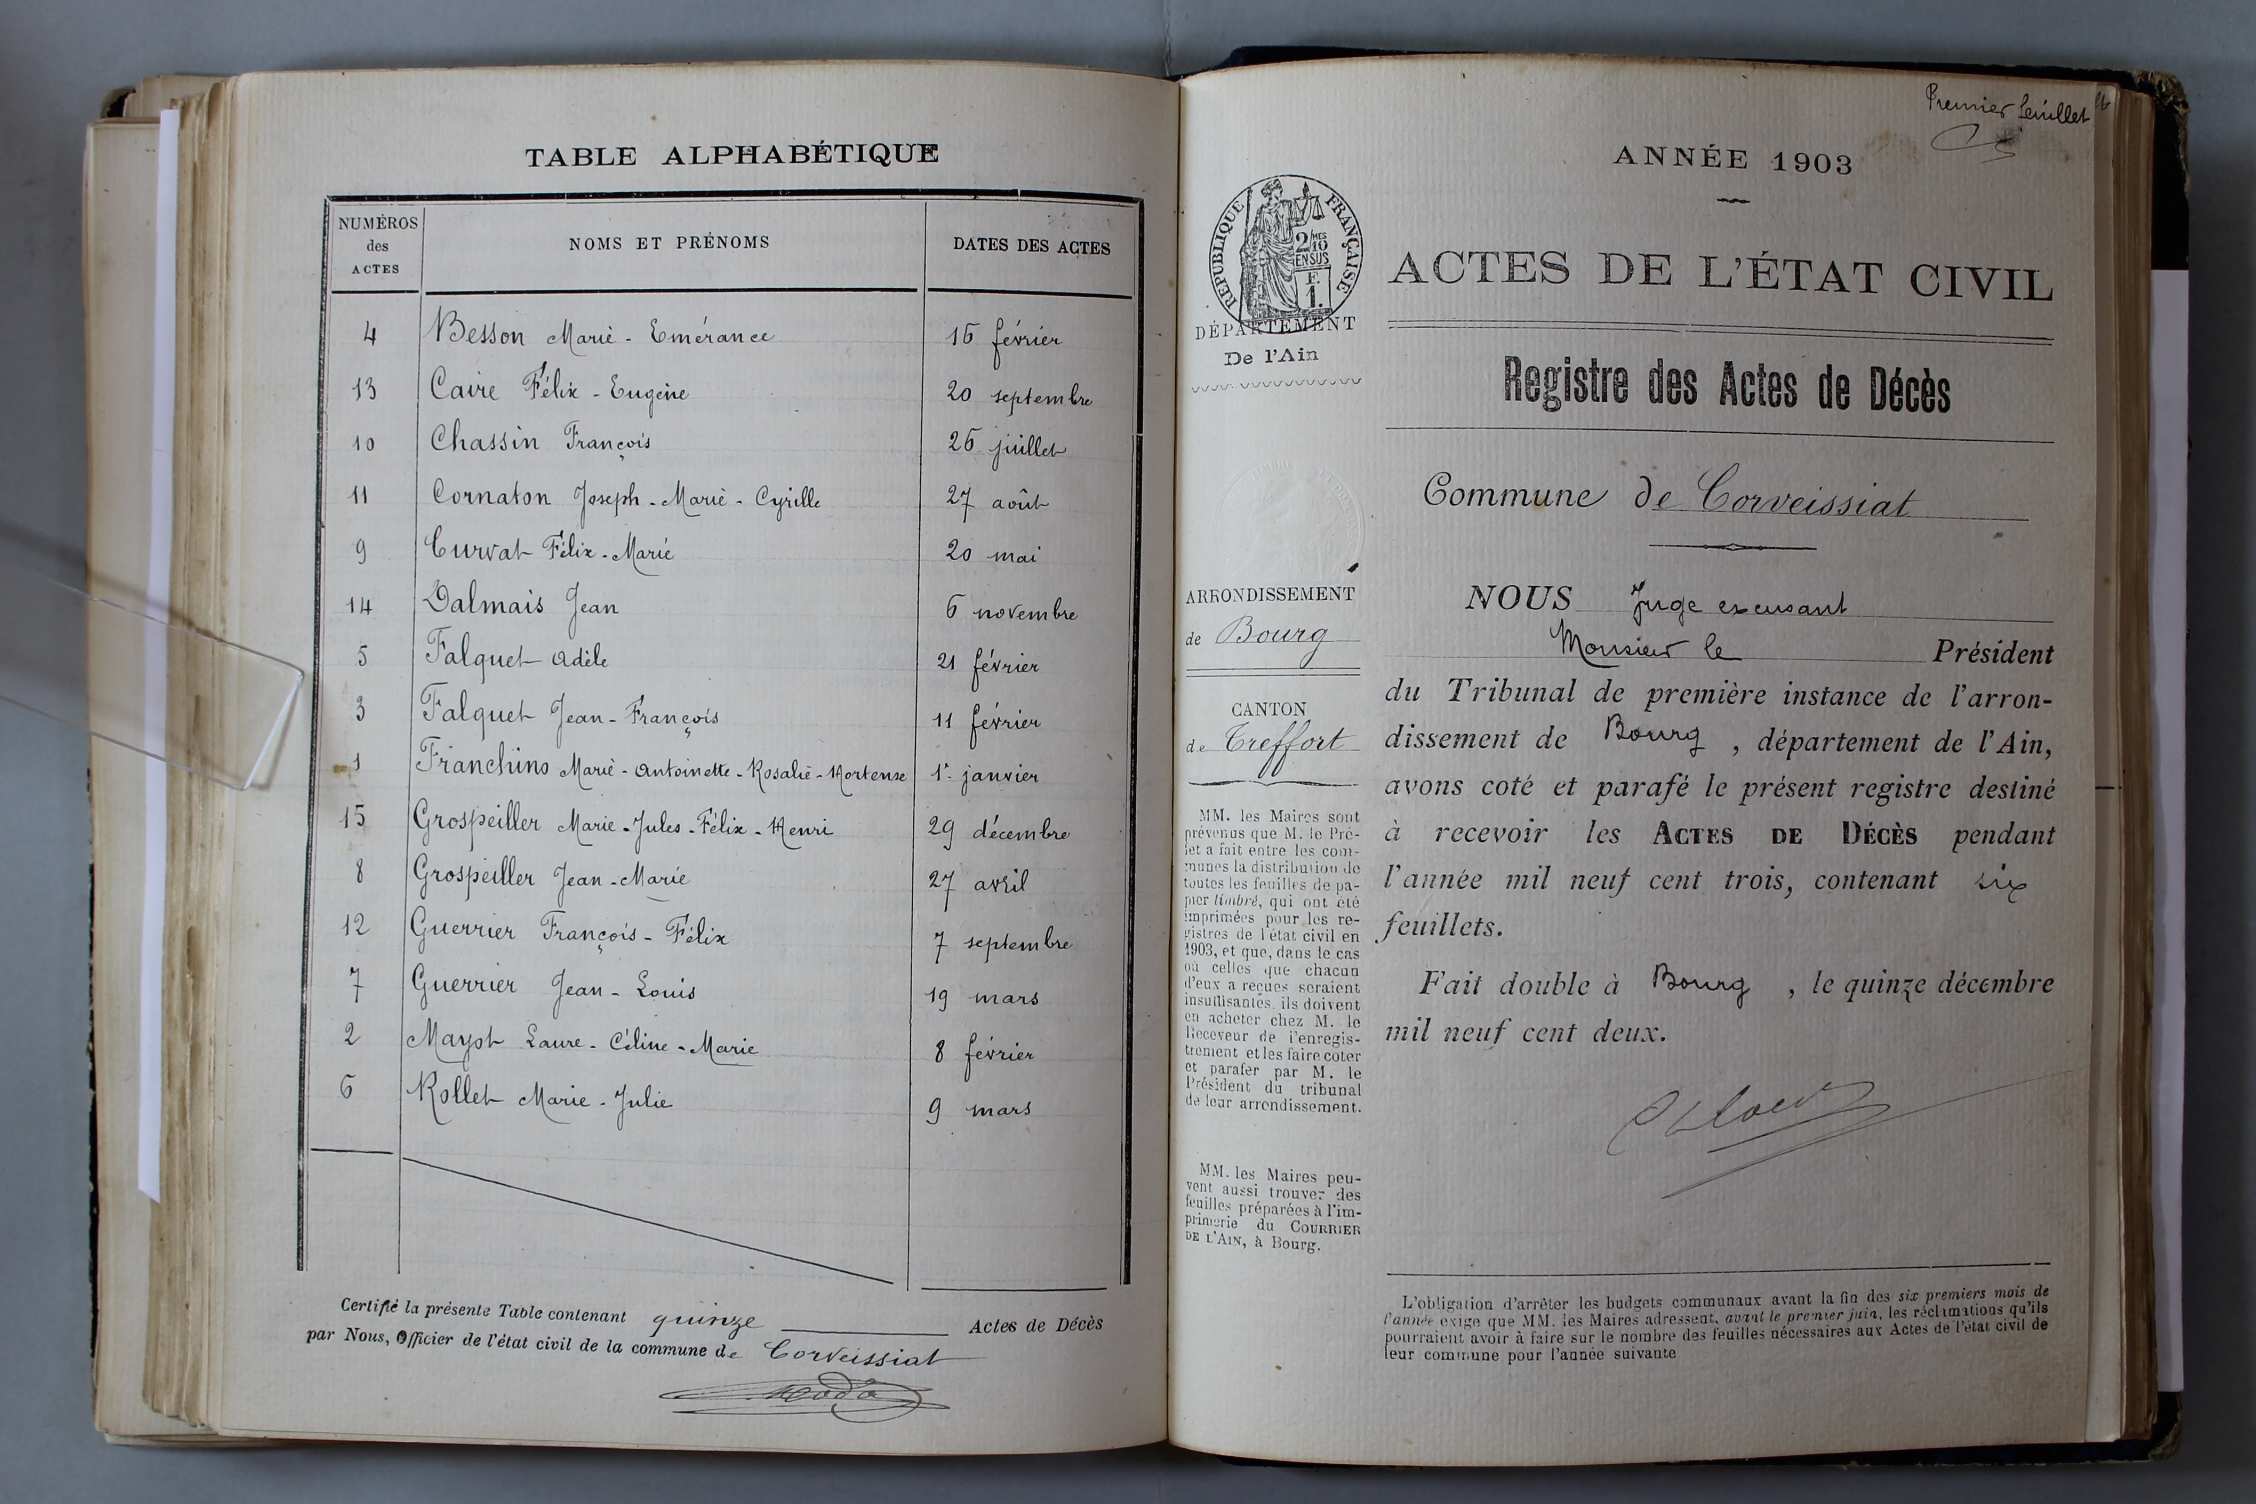 TABLE ALPHABÉTIQUE
NUMÉROS des ACTES
NOMS ET PRÉNOMS
DATES DES ACTES
4 Besson Marie - Emérance 16 février
13 Caire Félix - Eugène 20 septembre
10 Chassin François 26 juillet
11 Cornaton Joseph - Marie - Cyrille 27 août
9 Curvat Félix - Marie 20 mai
14 Dalmais Jean 6 novembre
5 Falquet Adèle 21 février
3 Falquet Jean - François 11 février
1 Franchino Marie - Antoinette - Rosalie - Hortense 1er janvier
15 Grospeiller Marie - Jules - Félix - Henri 29 décembre
8 Grospeiller Jean - Marie 27 avril
12 Guerrier François - Félix 7 septembre
7 Guerrier Jean - Louis 19 mars
2 Mayot Laure - Céline - Marie 8 février
6 Rollet Marie - Julie 9 mars
Certifié la présente Table contenant quinze Actes de Décès
par Nous, Officier de l'état civil de la commune de Corveissiat
Premier feuillet
ANNÉE 1903
RÉPUBLIQUE FRANÇAISE
2/10 MES
EN SUS
F.
1.
DÉPARTEMENT
De l'Ain
ACTES DE L'ÉTAT CIVIL
Registre des Actes de Décès
Commune de Corveissiat
ARRONDISSEMENT
de Bourg
CANTON
de Treffort
MM. les Maires sont
prévenus que M. le Pré-
fet a fait entre les com-
munes la distribution de
toutes les feuilles de pa-
pier timbré, qui ont été
imprimées pour les re-
gistres de l'état civil en
1903, et que, dans le cas
où celles que chacun
d'eux a reçues seraient
insuffisantes, ils doivent
en acheter chez M. le
Receveur de l'enregis-
trement et les faire coter
et parafer par M. le
Président du tribunal
de leur arrondissement.
MM. les Maires peu-
vent aussi trouver des
feuilles préparées à l'im-
primerie du COURRIER
DE L'AIN, à Bourg.
NOUS Juge excusant
Monsieur le Président
du Tribunal de première instance de l'arron-
dissement de Bourg, département de l'Ain,
avons coté et parafé le présent registre destiné
à recevoir les ACTES DE DÉCÈS pendant
l'année mil neuf cent trois, contenant six
feuillets.
Fait double à Bourg, le quinze décembre
mil neuf cent deux.
L'obligation d'arrêter les budgets communaux avant la fin des six premiers mois de
l'année exige que MM. les Maires adressent, avant le premier juin, les réclamations qu'ils
pourraient avoir à faire sur le nombre des feuilles nécessaires aux Actes de l'état civil de
leur commune pour l'année suivante